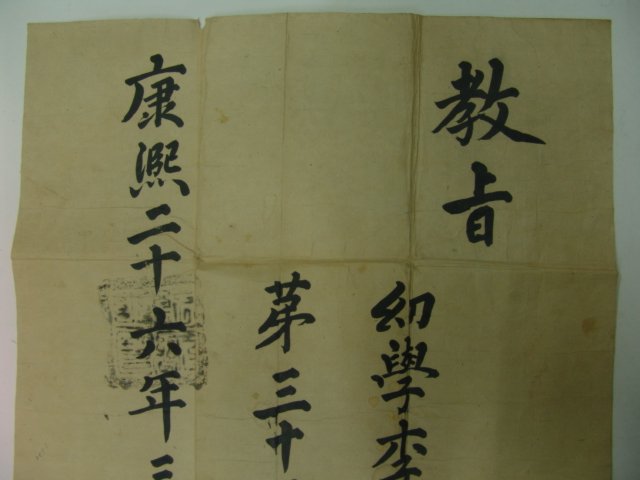 教旨
幼學李
第三十
康熙二十六年三